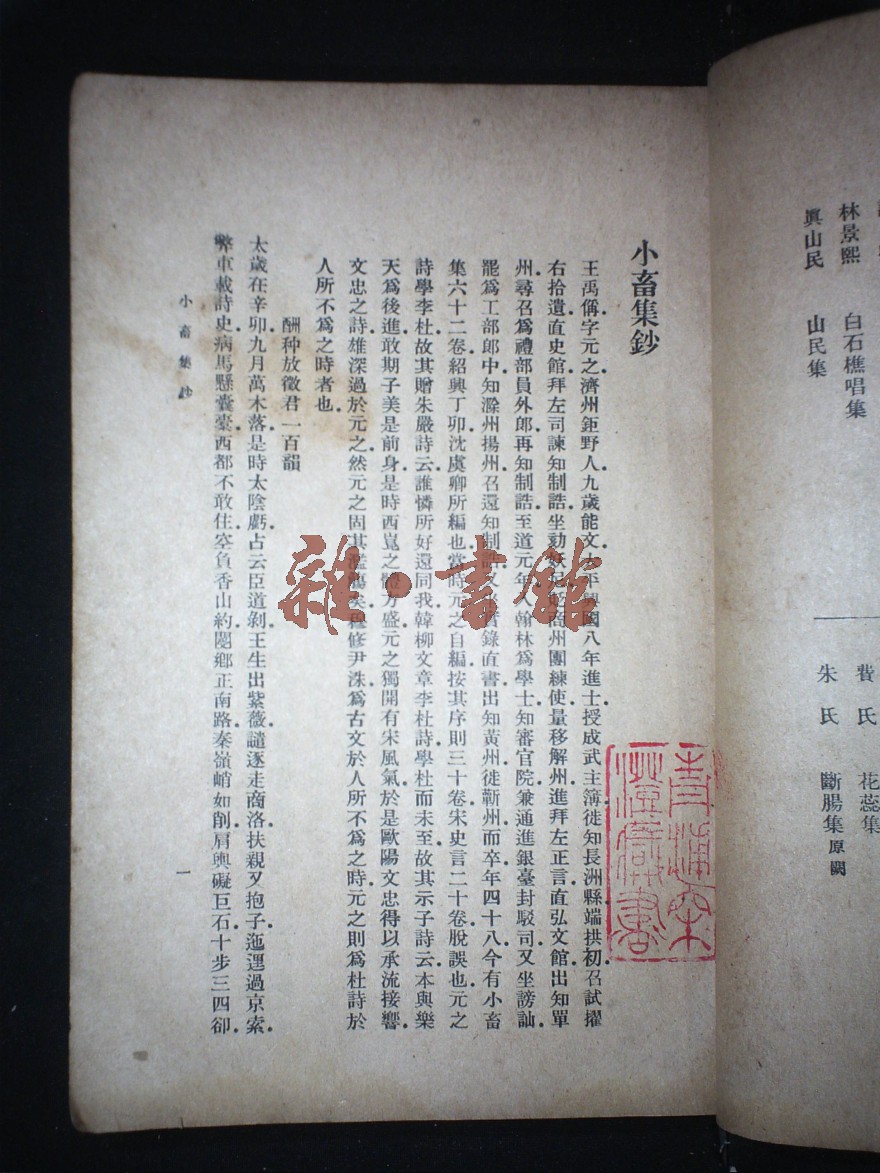 林景熙 白石樵唱集
眞山民 山民集
費氏 花蕊集
朱氏 斷腸集原闕
小畜集鈔
王禹偁字元之濟州鉅野人九歲能文太平興國八年進士授成武主簿徙知長洲縣端拱初召試擢
右拾遺直史館拜左司諫知制誥坐劾妖尼貶商州團練使量移解州進拜左正言直弘文館出知單
州尋召爲禮部員外郎再知制誥至道元年入翰林爲學士知審官院兼通進銀臺封駁司又坐謗訕
罷爲工部郎中知滁州揚州召還知制誥又以實錄直書出知黃州徙蘄州而卒年四十八今有小畜
集六十二卷紹興丁卯沈虞卿所編也當時元之自編按其序則三十卷宋史言二十卷脫誤也元之
詩學李杜故其贈朱嚴詩云誰憐所好還同我韓柳文章李杜詩學杜而未至故其示子詩云本與樂
天爲後進敢期子美是前身是時西崑之體方盛元之獨開有宋風氣於是歐陽文忠得以承流接響
文忠之詩雄深過於元之然元之固其濫觴矣穆修尹洙爲古文於人所不爲之時元之則爲杜詩於
人所不爲之時者也
酬种放徵君一百韻
太歲在辛卯九月萬木落是時太陰虧占云臣道剝王生出紫薇譴逐走商洛扶親又抱子迤邐過京索
弊車載詩史病馬懸囊橐西都不敢住空負香山約閿鄉正南路秦嶺峭如削肩輿礙巨石十步三四卻
小畜集鈔 一
雜·書館